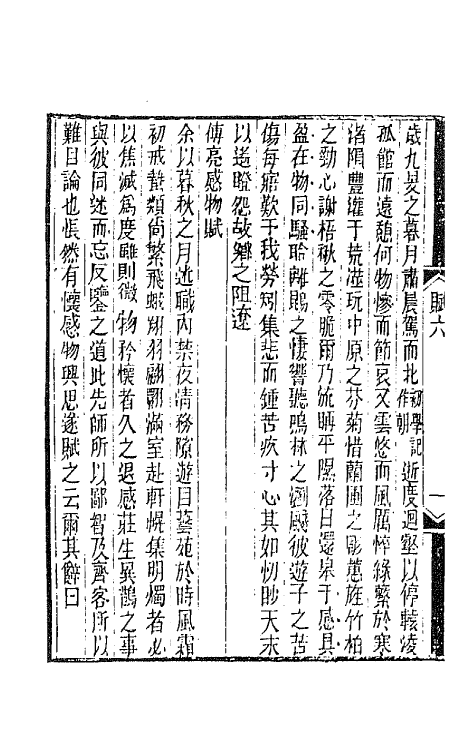 賦六
一
歲九旻之暮月肅晨駕而北初學記作朝逝度迴壑以停轅凌
孤館而遠憩何物慘而節哀又雲悠而風厲悴綠蘩於寒
渚隕豐灌于荒澨玩中原之芬菊惜蘭圃之彫蕙旌竹柏
之勁心謝梧楸之零脆爾乃流眄平隰落日還皋于感具
盈在物同騷聆離鵾之悽響聽鳴林之洄飈彼遊子之苦
傷每寤歎于我勞矧集悲而鍾苦疚寸心其如忉眇天末
以遙睠怨故鄉之阻遼
傅亮感物賦
余以暮秋之月述職內禁夜清務隙遊目藝苑於時風霜
初戒蟄類尚繁飛蛾翔羽翩翾滿室赴軒幌集明燭者必
以焦滅爲度雖則微物矜懷者久之退感莊生異鵲之事
與彼同迷而忘反鑒之道此先師所以鄙智及齊客所以
難目論也悵然有懷感物興思遂賦之云爾其辭曰